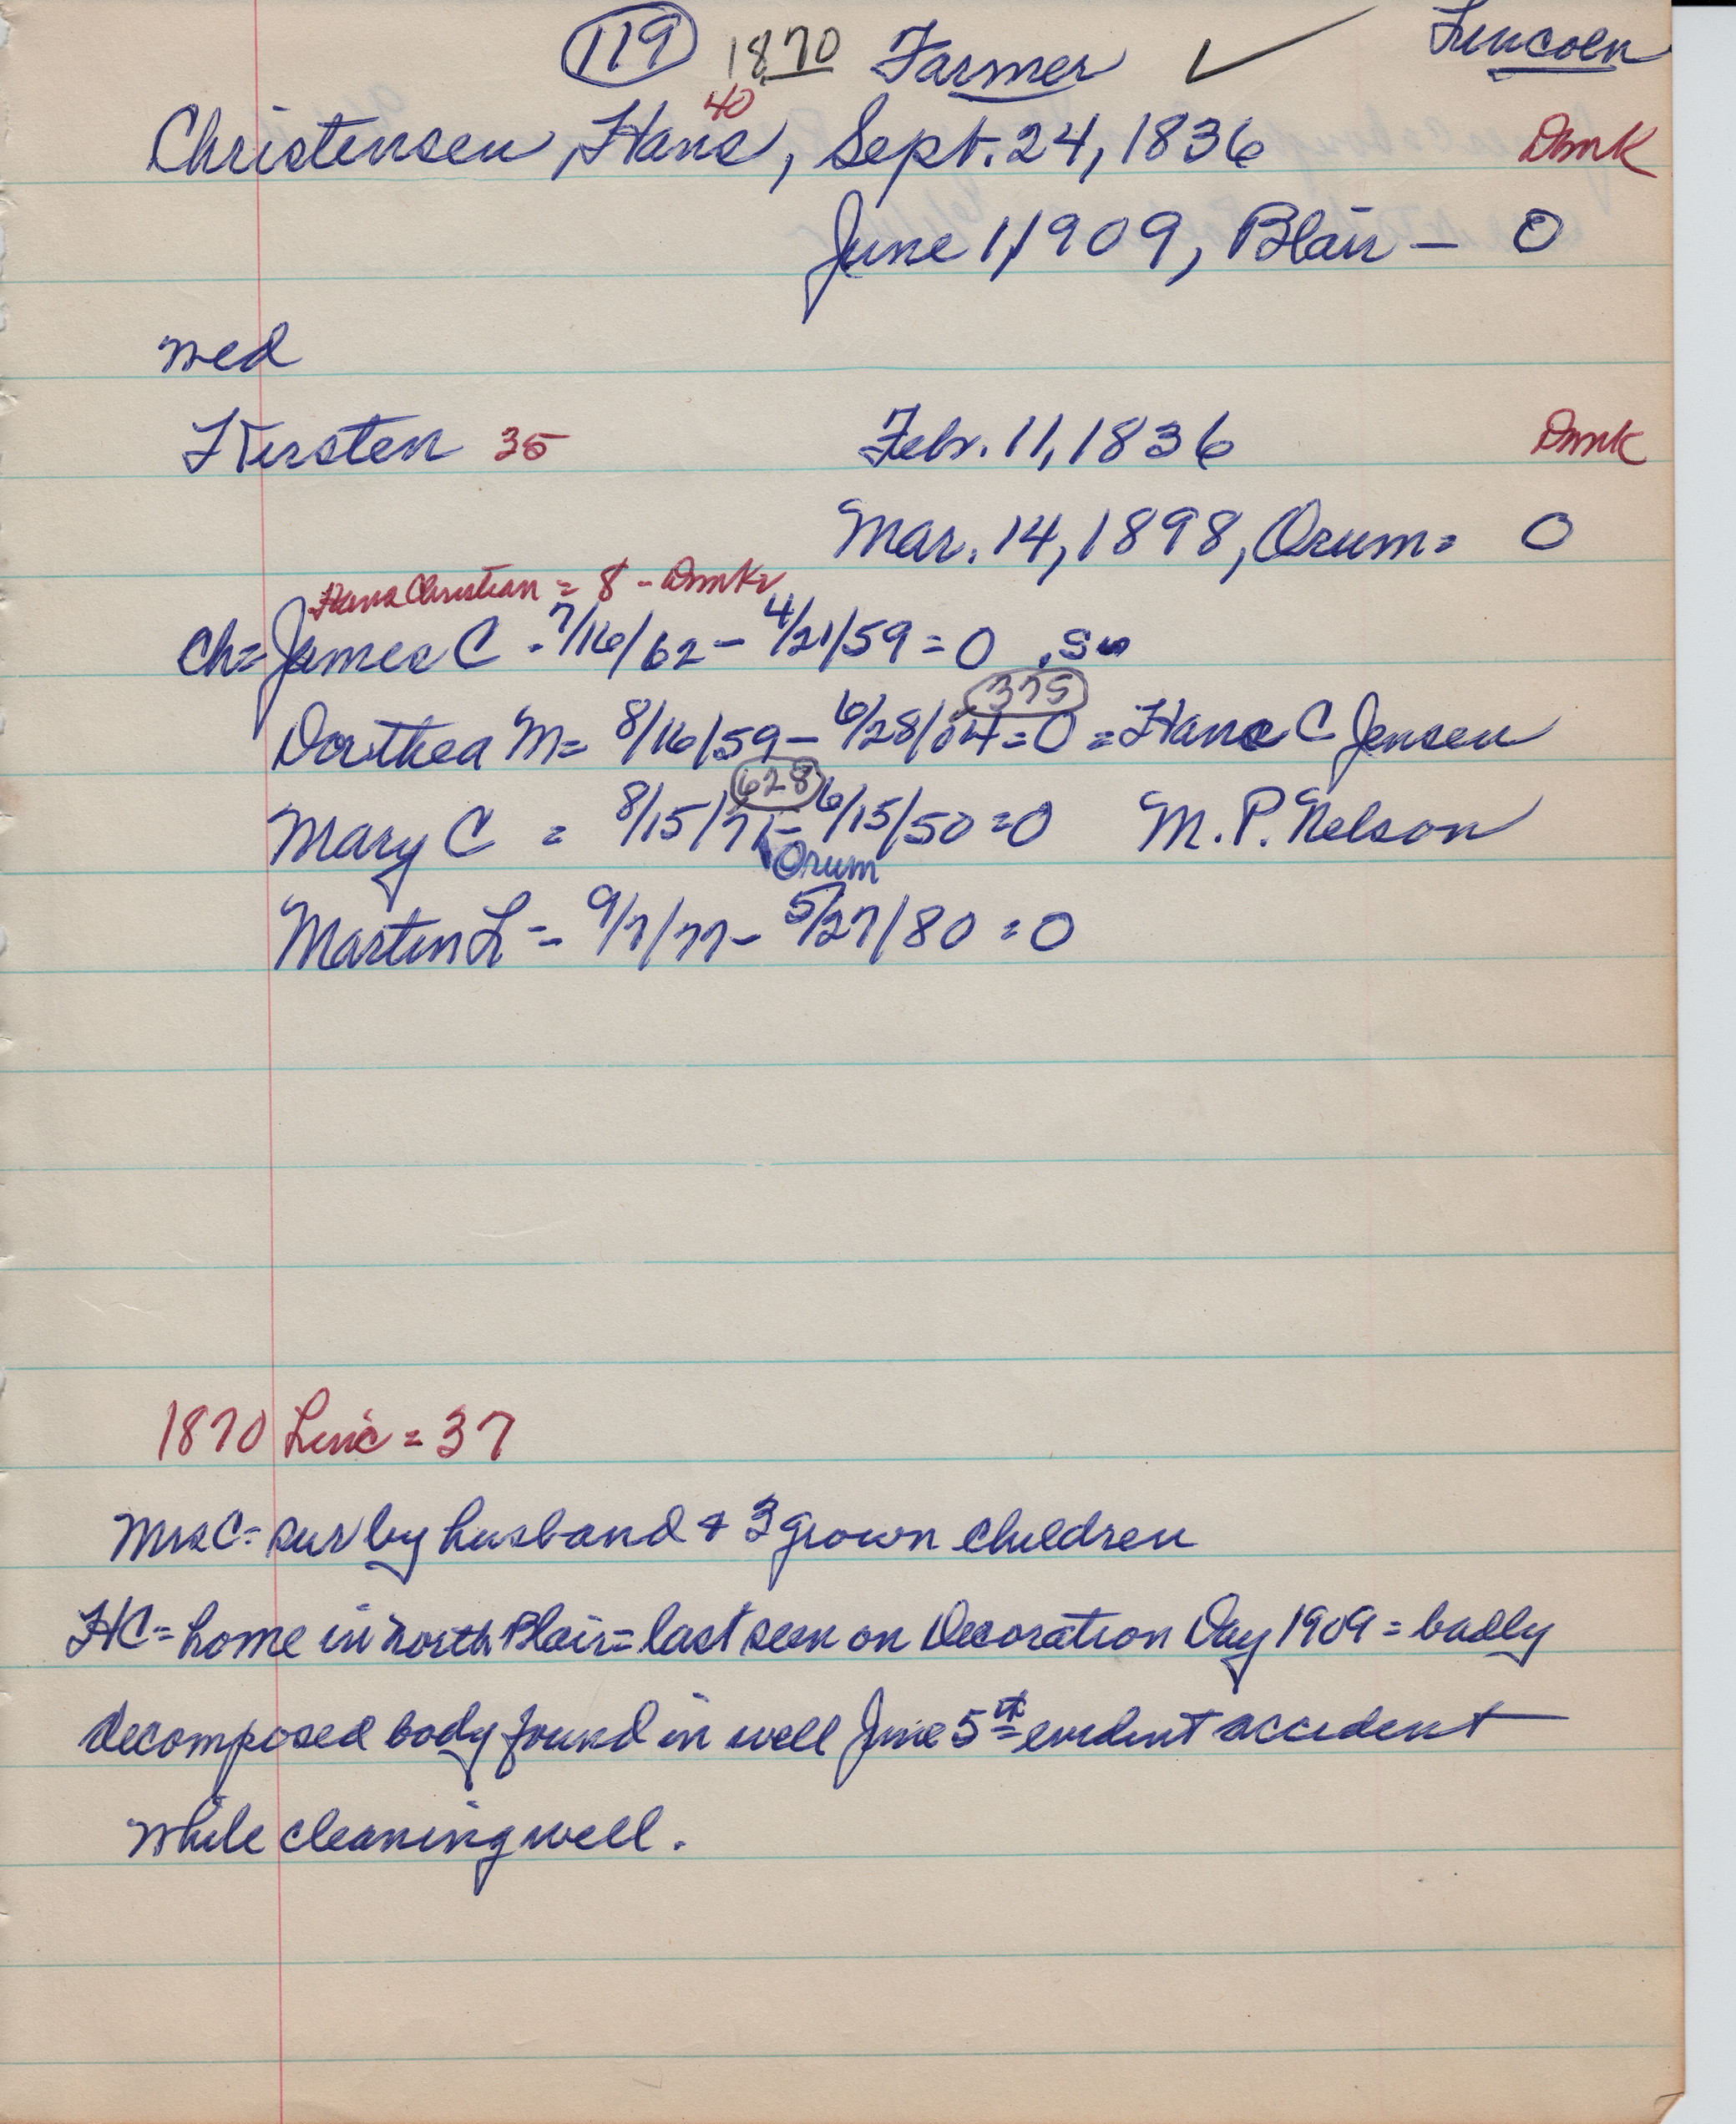 119 1870 Farmer ✓ Lincoln
40
Christensen, Hans, Sept. 24, 1836 Dmk
June 1, 1909, Blair — O
med
Kirsten 35 Febr. 11, 1836 Dmk
Mar. 14, 1898, Orum = O
Hans Christian = 8 - Dmk
Ch = James C - 7/16/62 - 4/21/59 = O
375
Dorthea M = 8/16/59 - 6/28/34 = O = Hans C Jensen
628
Mary C = 8/15/71 - 6/15/50 = O M. P. Nelson
Orum
Martin L = 9/7/77 - 5/27/80 = O
1870 Linc = 37
Mrs C = sur by husband & 3 grown children
HC = home in north Blair = last seen on Decoration Day 1909 = badly
decomposed body found in well June 5th = evident accident
while cleaning well.